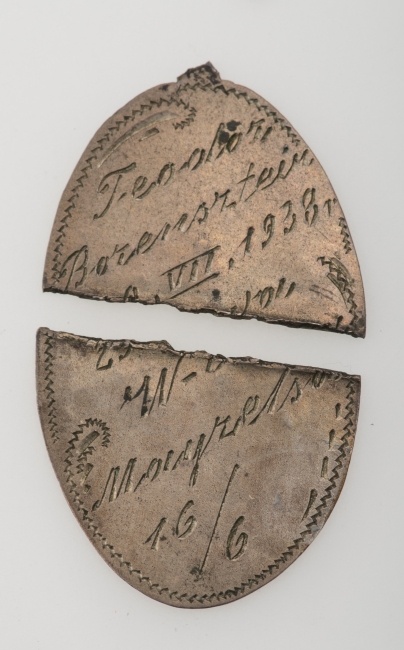 Teodor
Borensztein
VII. 1938r
W-
Mayzelsa
16/6